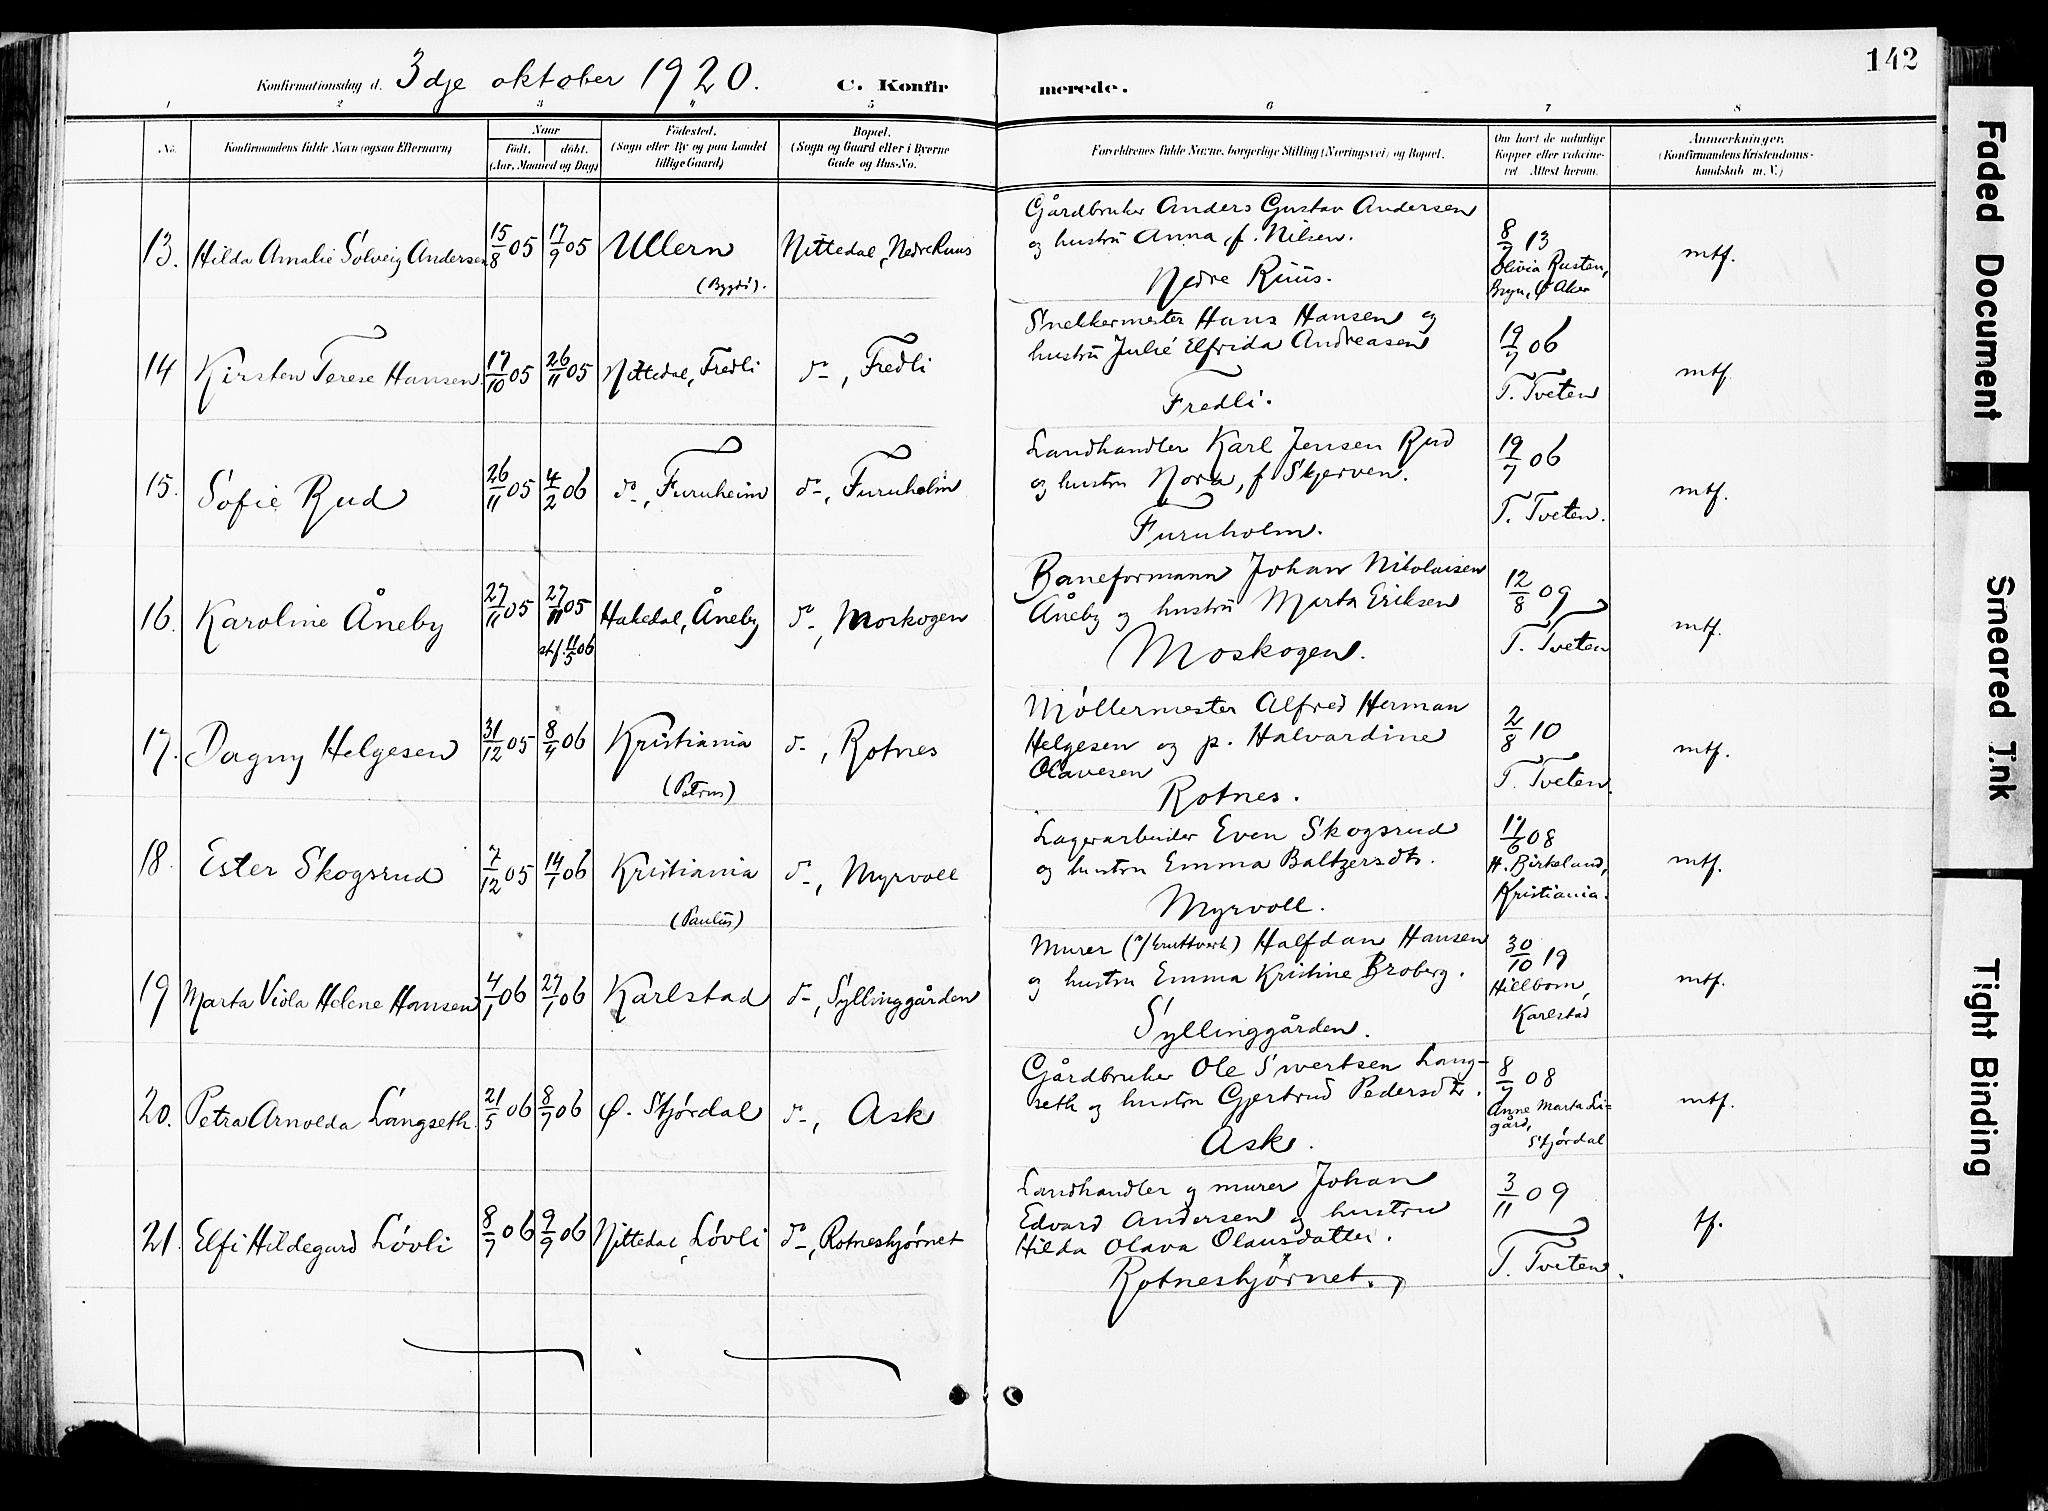 142
Konfirmationsdag d. 3dje oktober 1920. C. Konfirmerede.
1 2 3 4 5 6 7 8
No. Konfirmandens fulde Navn (ogsaa Efternavn)
Naar
født. døbt.
(Aar, Maaned og Dag)
Fødested.
(Sogn eller By og paa Landet
tillige Gaard)
Bopæl.
(Sogn og Gaard eller i Byerne
Gade og Hus-No.
Forældrenes fulde Navne, borgerlige Stilling (Næringsvei) og Bopæl.
Om havt de naturlige
Kopper eller vakcine-
ret Attest herom.
Anmærkninger.
(Konfirmandens Kristendoms-
kundskab m. V.)
13. Hilda Amalie Solveig Andersen 15/8 05 17/9 05 Ullern (Bygdö). Nittedal, Nedre Ruus
Gårdbruker Anders Gustav Andersen
og hustru Anna, f. Nilsen.
Nedre Ruus.
8/7 13
Olivia Rusten,
Bryn, Ø Aker
mtf.
14 Kirsten Terese Hansen 17/10 05 26/11 05 Nittedal, Fredli do, Fredli
Snekkermester Hans Hansen og
hustru Julie Elfrida Andreasen
Fredli.
19/7 06
T. Tveten
mtf.
15. Sofie Rud 26/11 05 4/2 06 do, Furuheim do, Furuholm
Landhandler Karl Jensen Rud
og hustru Nora, f Skjerven.
Furuholm.
19/7 06
T. Tveten.
mtf.
16. Karoline Åneby 27/11 05 27/11 05 stf. 11/5 06 Hakedal, Åneby do, Moskogen
Baneformann Johan Nikolaisen
Åneby og hustru Marta Eriksen
Moskogen.
12/8 09
T. Tveten
mtf.
17. Dagny Helgesen 31/12 05 8/4 06 Kristiania (Petrus) do, Rotnes
Möllermester Alfred Herman
Helgesen og p. Halvardine
Olavesen
Rotnes.
2/8 10
T. Tveten.
mtf.
18. Ester Skogsrud 7/12 05 14/1 06 Kristiania (Paulus) do, Myrvoll
Lagerarbeider Even Skogsrud
og hustru Emma Baltzersdtr.
Myrvoll.
17/6 08
H. Birkeland,
Kristiania.
mtf.
19 Marta Viola Helene Hansen 4/1 06 27/1 06 Karlstad do, Syllinggården
Murer (v/ kruttverk) Halfdan Hansen
og hustru Emma Kristine Broberg.
Syllinggården.
30/10 19
Hillbom,
Karlstad
mtf.
20. Petra Arnolda Langseth 21/5 06 8/7 06 Ø. Stjórdal do, Ask
Gårdbruker Ole Sivertsen Lang-
seth og hustru Gjertrud Pedersdtr.
Ask.
8/7 08
Anne Marta Li-
gård,
Stjórdal
mtf.
21. Elfi Hildegard Lóvli 8/7 06 9/9 06 Nittedal, Lóvli do, Rotneshjórnet
Landhandler og murer Johan
Edvard Andersen og hustru
Hilda Olava Olausdatter.
Rotneshjórnet.
3/11 09
T. Tveten.
tf.
Faded Document
Smeared Ink
Tight Binding